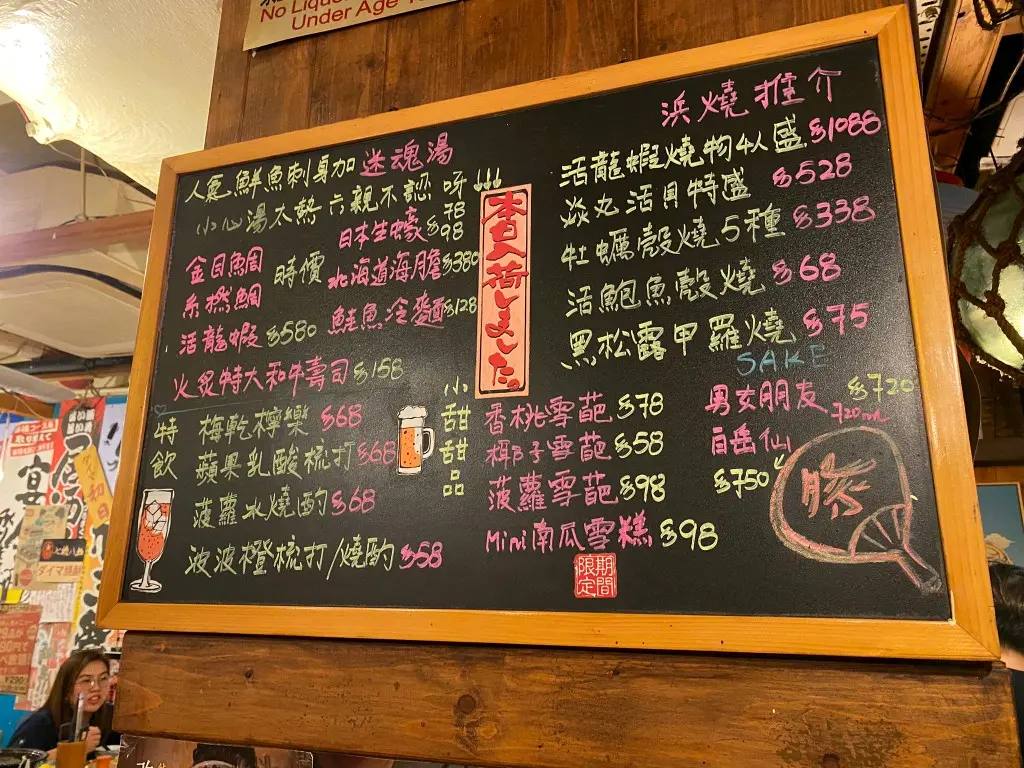 No Liquor
Under Age
人氣鮮魚刺身加 迷魂湯
小心湯太熱 六親不認 呀
金目鯛
時價
糸撚鯛
活龍蝦 $580
日本生蠔 $78
$98
北海道海膽 $380
鮭魚冷麵 $128
火炙特大和牛壽司 $158
特飲
梅乾檸樂 $68
蘋果乳酸梳打 $68
菠蘿冰燒酌 $68
波波橙梳打/燒酌 $58
本日入荷しました。
浜燒推介
活龍蝦燒物4人盛 $1088
焱丸活貝特盛 $528
牡蠣殼燒5種 $338
活鮑魚殼燒 $68
黑松露甲羅燒 $75
小甜甜品
香桃雪葩 $78
椰子雪葩 $58
菠蘿雪葩 $98
Mini南瓜雪糕 $98
期間限定
SAKE
男女朋友 $720
720ml
白岳仙
$750
勝
宴